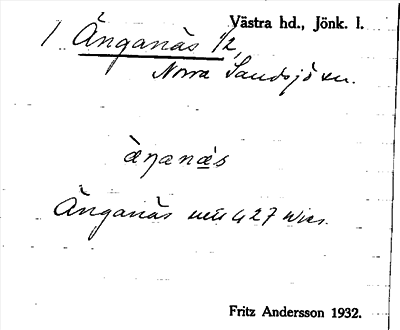 Västra hd., Jönk. l.
1 Ånganäs 1/2,
Norra Sandsjö sn.
Ånganäs 427 Wies.
Fritz Andersson 1932.